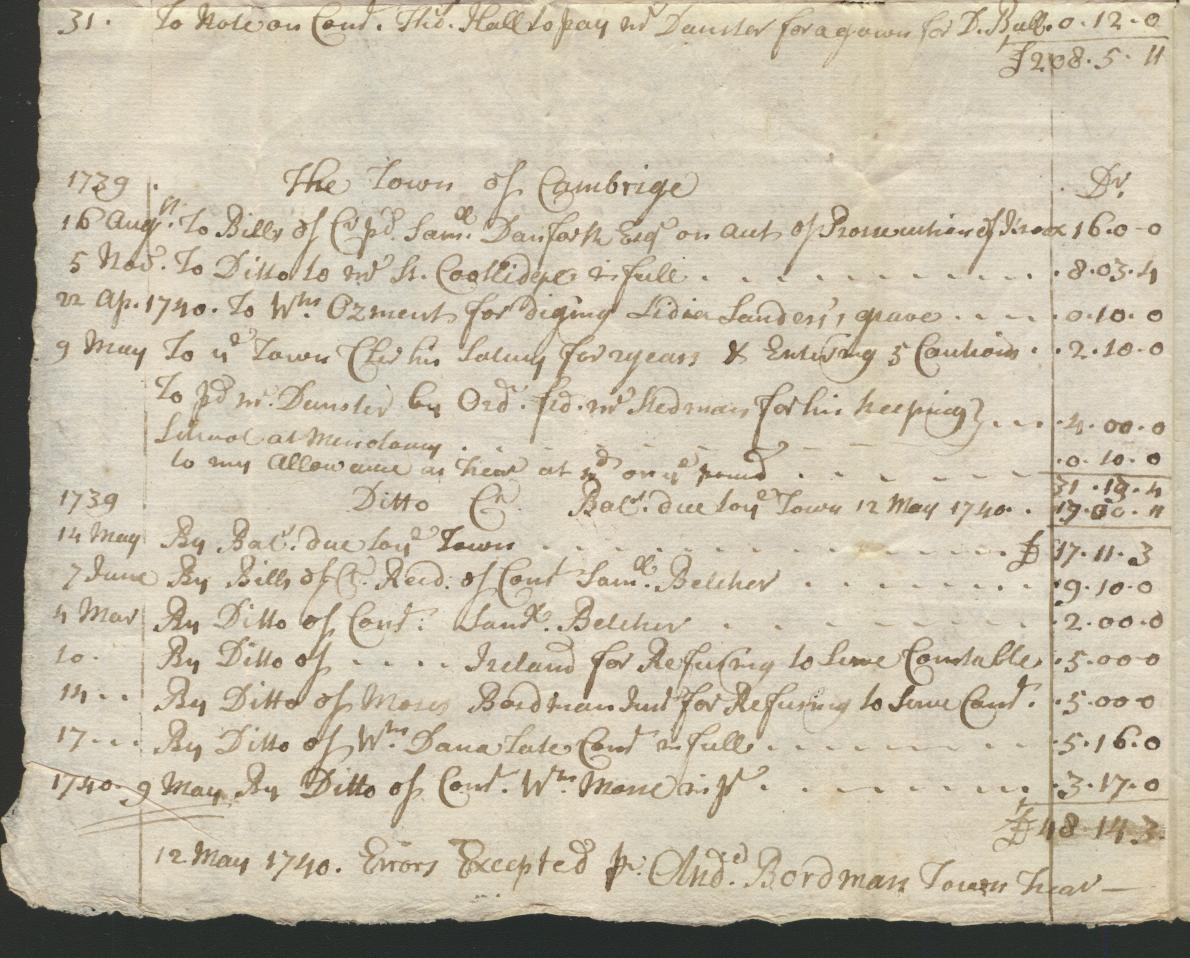 31. To Note on Const. Tho.s Hall to pay mr Danster for a gown for D. Ball. 0.12.0
£208.5.11
1739 The Town of Cambrige Dr.
16 Augst. To Bills of Cr. pd. Samll. Danforth Esqr on acct of Prosecution of 16.0.0
5 Nov. To Ditto to mr St. Coollidge in full 8.03.4
22 Ap. 1740. To Wm. Ozment for diging Lidia Sanders's grave 0.10.0
9 May To ye Town Cler his Salary for 2 years & Entering 5 Cautions 2.10.0
To pd mr. Dunster by Ord. mr Stedman for his keeping
School at Menotamy 4.00.0
to my Allowance as Trear at on ye pound 0.10.0
31.13.4
1739 Ditto Cr. Bale. due to ye Town 12 May 1740. 17.00.11
14 May By Bale. due to ye Town £17.11.3
7 June By Bills of Cr. Recd. of Const Samll. Belcher 9.10.0
4 Mar By Ditto of Const. Samll. Belcher 2.00.0
10. By Ditto of .... Ireland for Refusing to Serve Constable 5.00.0
14.. By Ditto of Moses Bordman Junr for Refusing to Serve Const. 5.00.0
17... By Ditto of Wm. Dana late Const in full 5.16.0
1740. 9 May By Ditto of Const. Wm. Morse in pt. 3.17.0
£48 14 3
12 May 1740. Errors Excepted pr. Andw. Bordman Town Trear